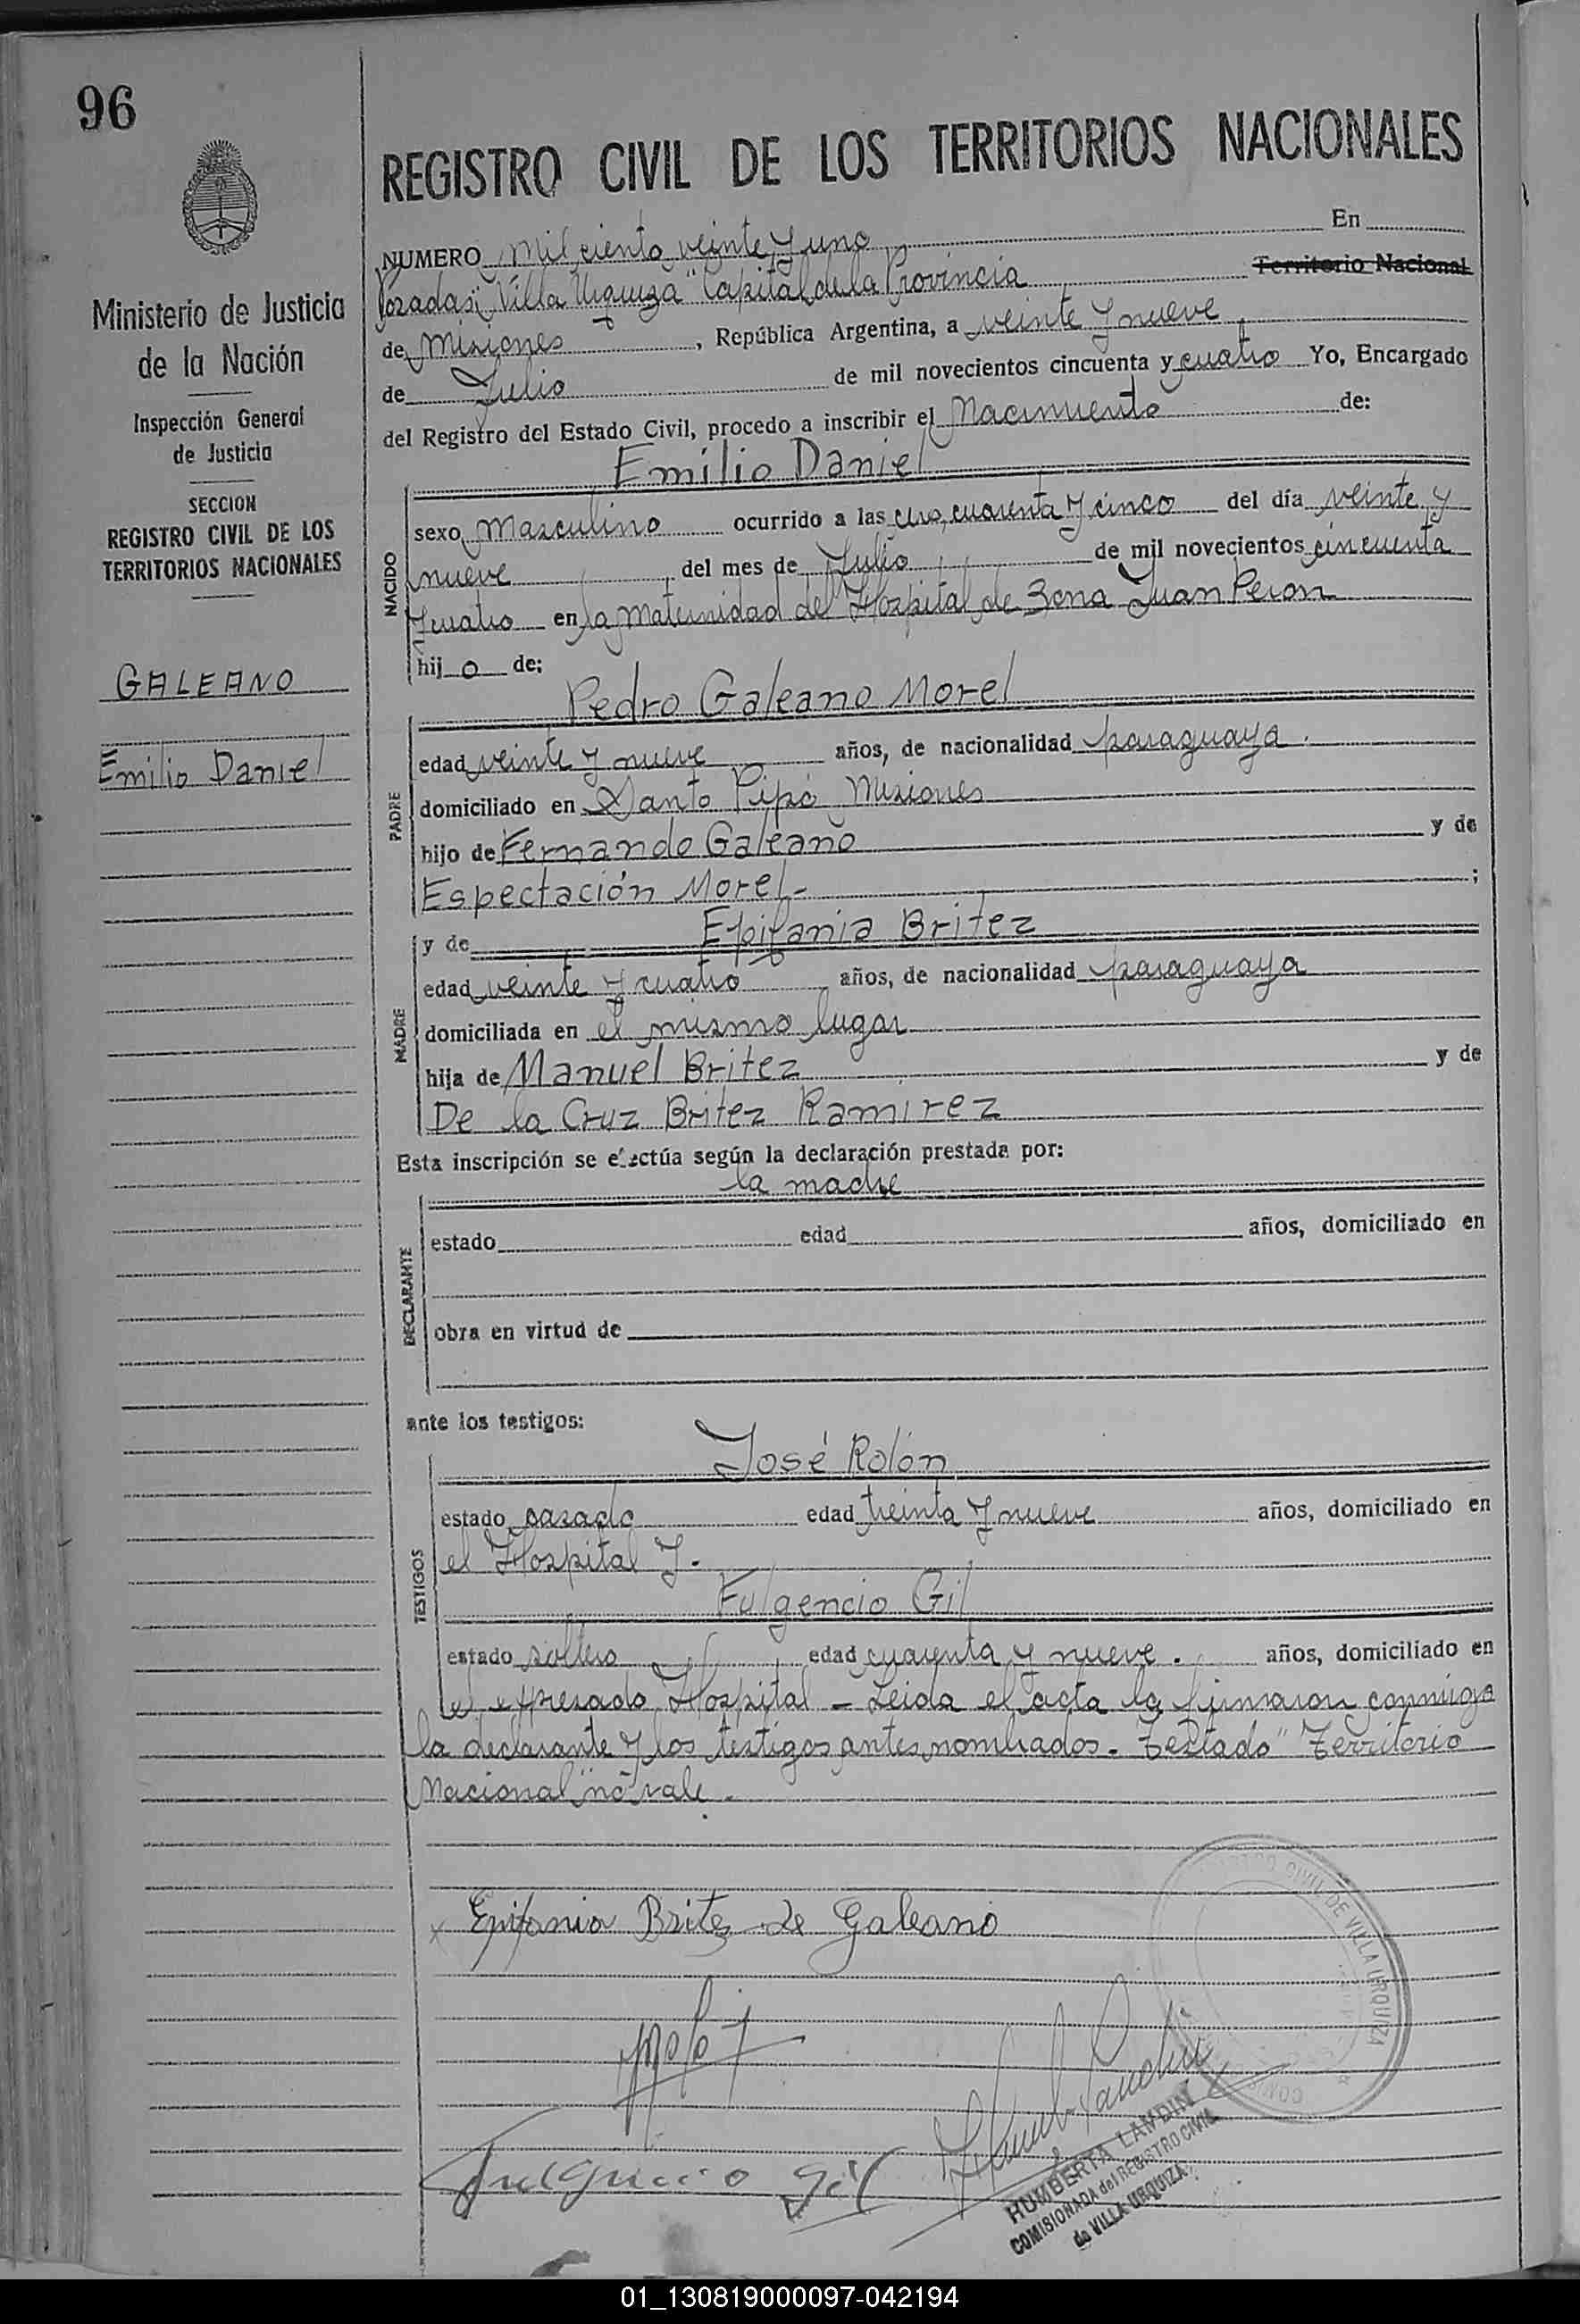 96
REGISTRO CIVIL DE LOS TERRITORIOS NACIONALES
Ministerio de Justicia
de la Nación
Inspección General
de Justicia
SECCION
REGISTRO CIVIL DE LOS
TERRITORIOS NACIONALES
GALEANO
Emilio Daniel
NUMERO Mil ciento veinte y uno En
Posadas "Villa Urquiza" Capital de la Provincia Territorio Nacional
de Misiones, República Argentina, a veinte y nueve
de Julio de mil novecientos cincuenta y cuatro Yo, Encargado
del Registro del Estado Civil, procedo a inscribir el Nacimiento de:
Emilio Daniel
NACIDO
sexo Masculino ocurrido a las cero, cuarenta y cinco del día veinte y
nueve, del mes de Julio de mil novecientos cincuenta
y cuatro en la Maternidad del Hospital de Zona Juan Peron
hijo de:
Pedro Galeano Morel
PADRE
edad veinte y nueve años, de nacionalidad paraguaya.
domiciliado en Santo Pipó Misiones
hijo de Fernando Galeano y de
Espectación Morel.- ;
MADRE
y de Epifania Britez
edad veinte y cuatro años, de nacionalidad paraguaya
domiciliada en el mismo lugar
hija de Manuel Britez y de
De la Cruz Britez Ramirez
Esta inscripción se efectúa según la declaración prestada por:
la madre
DECLARANTE
estado edad años, domiciliado en
obra en virtud de
ante los testigos:
José Rolón
TESTIGOS
estado casado edad treinta y nueve años, domiciliado en
el Hospital y.
Fulgencio Gil
estado soltero edad cuarenta y nueve. años, domiciliado en
el expresado Hospital - Leida el acta la firmaron conmigo
la declarante y los testigos antes nombrados. Testado "Territorio
Nacional" no vale.
x Epifania Brites de Galeano
Fulguecio Gil
CIVIL DE VILLA URQUIZA
HUMBERTA LANDINI
COMISIONADA del REGISTRO CIVIL
de VILLA URQUIZA
01_130819000097-042194